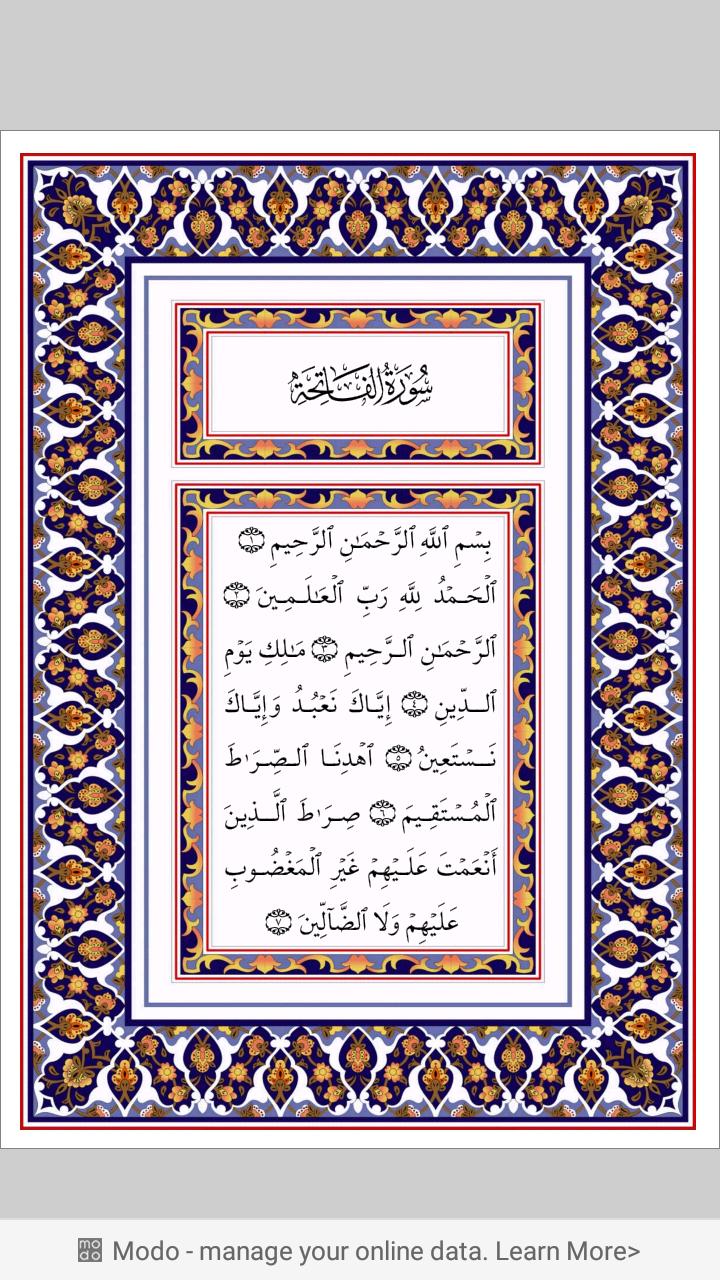 سُورَةُ الفَاتِحَةِ
بِسۡمِ ٱللَّهِ ٱلرَّحۡمَٰنِ ٱلرَّحِيمِ ١
ٱلۡحَمۡدُ لِلَّهِ رَبِّ ٱلۡعَٰلَمِينَ ٢
ٱلرَّحۡمَٰنِ ٱلرَّحِيمِ ٣ مَٰلِكِ يَوۡمِ
ٱلدِّينِ ٤ إِيَّاكَ نَعۡبُدُ وَإِيَّاكَ
نَسۡتَعِينُ ٥ ٱهۡدِنَا ٱلصِّرَٰطَ
ٱلۡمُسۡتَقِيمَ ٦ صِرَٰطَ ٱلَّذِينَ
أَنۡعَمۡتَ عَلَيۡهِمۡ غَيۡرِ ٱلۡمَغۡضُوبِ
عَلَيۡهِمۡ وَلَا ٱلضَّآلِّينَ ٧
modo Modo - manage your online data. Learn More>